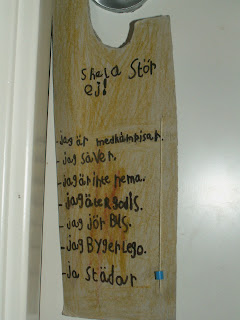 Shala Stör
ej!
-jag är medkåmpisar.
-jag såver.
-jag är inte hema.
-jag äter godis.
-jag jör BUS.
-jag BYger lego.
-ja städar